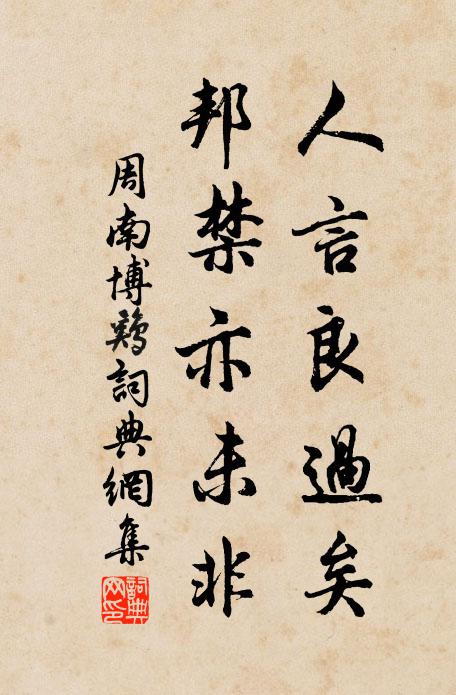 人言良過矣
邦禁亦未非
周南博鷄詞典網集
詞典
网印